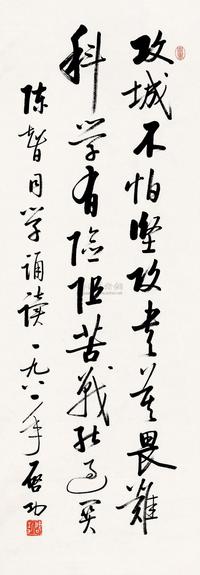 攻城不怕堅攻书莫畏難
科学有險阻苦戰能过关
陈智同学诵读一九八一年 启功